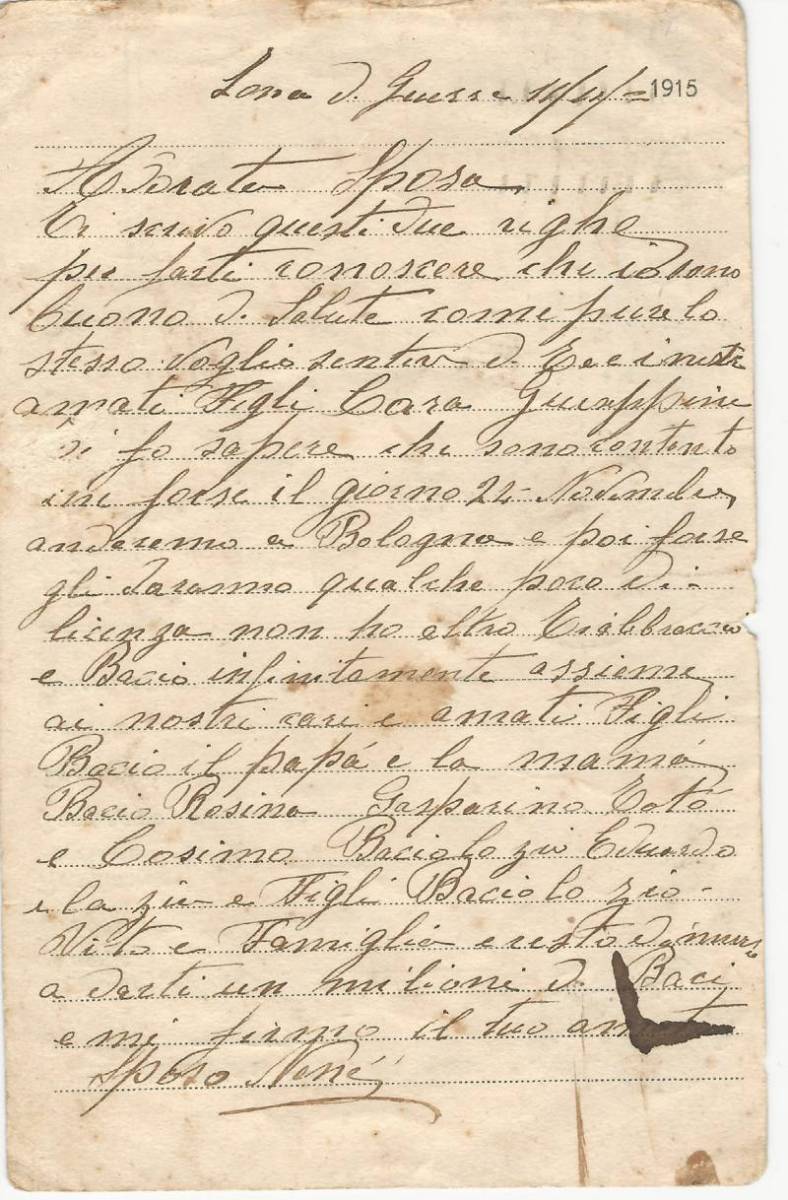 Zona di Guerra 14/11/=1915
Adorata Sposa,
Ti scrivo questi due righe
per farti conoscere che io sono
buono di Salute comi pure lo
stesso voglio sentire di Te e i nostri
amati Figli Cara Giuseppina
Ti fo sapere che sono contento
forse il giorno Novembre
anderemo a Bologna e poi forse
gli daranno qualche poco di-
licenza non ho altro Ti abbraccio
e Bacio infinitamente assieme
ai nostri cari e amati Figli
Bacio il papá e la mamá
Bacio Rosina Gasparino Totó
e Cosimo Bacio lo zio Eduardo
e la zia e Figli Bacio lo zio-
Vito e Famiglia e resto di nuovo
a darti un milioni di Baci
e mi firmo il tuo amato
Sposo Nenné